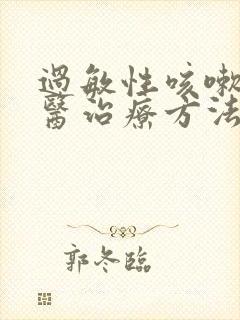 過敏性咳嗽
醫治療方法
郭冬臨